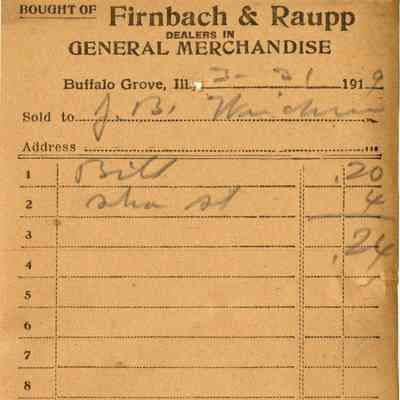 BOUGHT OF Firnbach & Raupp
DEALERS IN
GENERAL MERCHANDISE
Buffalo Grove, Ill., 3-31 1919
Sold to J. B.
Address
1 Bill .20
2 4
3 .24
4
5
6
7
8